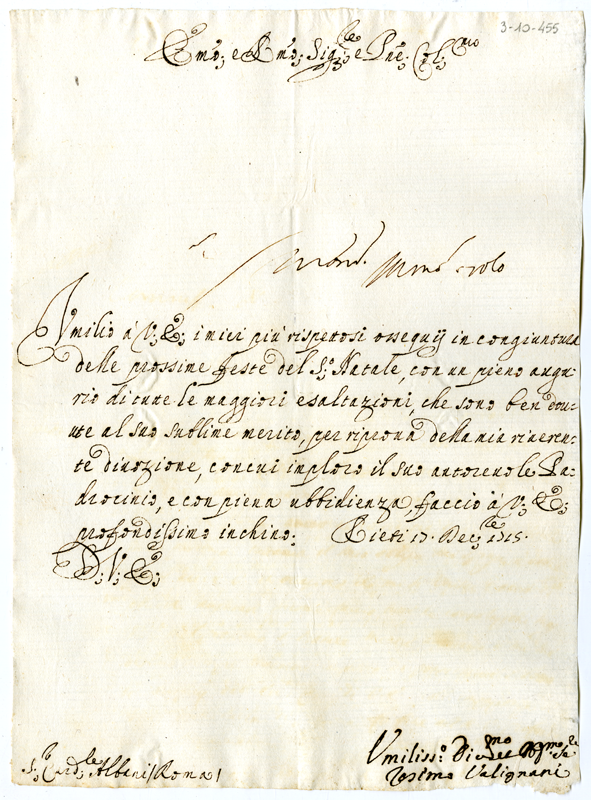 3-10-455
Em.o; e Rm.o; Sig.re e Pne; Col.mo
Umilio à V; E; i miei più rispettosi ossequij in congiuntura
delle prossime feste del S.o Natale, con un pieno augu-
rio di tutte le maggiori esaltazioni, che sono ben dou-
ute al suo sublime merito, per riproua della mia riueren-
te diuozione, con cui imploro il suo autoreuole Pa-
drocinio, e con piena ubbidienza faccio à V; E;
profondissimo inchino; Rieti 17. Dec.bre 1715.
D; V; E;
Umiliss.o Diu.mo et Obg.mo Se.re
S.r Card.le Albani / Roma /
Cosimo Valignani